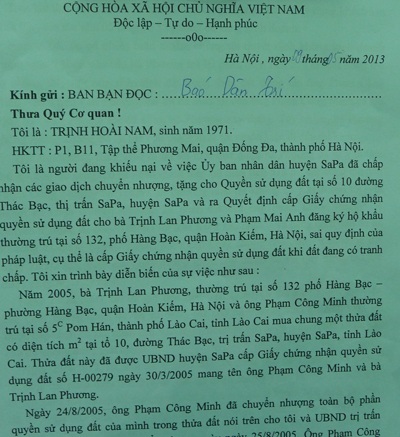 CỘNG HÒA XÃ HỘI CHỦ NGHĨA VIỆT NAM
Độc lập – Tự do – Hạnh phúc
------o0o------
Hà Nội , ngày 09 tháng 05 năm 2013
Kính gửi : BAN BẠN ĐỌC : Báo Dân Trí
Thưa Quý Cơ quan !
Tôi là : TRỊNH HOÀI NAM, sinh năm 1971.
HKTT : P1, B11, Tập thể Phương Mai, quận Đống Đa, thành phố Hà Nội.
Tôi là người đang khiếu nại về việc Ủy ban nhân dân huyện SaPa đã chấp
nhận các giao dịch chuyển nhượng, tặng cho Quyền sử dụng đất tại số 10 đường
Thác Bạc, thị trấn SaPa, huyện SaPa và ra Quyết định cấp Giấy chứng nhận
quyền sử dụng đất cho bà Trịnh Lan Phương và Phạm Mai Anh đăng ký hộ khẩu
thường trú tại số 132, phố Hàng Bạc, quận Hoàn Kiếm, Hà Nội, sai quy định của
pháp luật, cụ thể là cấp Giấy chứng nhận quyền sử dụng đất khi đất đang có tranh
chấp. Tôi xin trình bày diễn biến của sự việc như sau :
Năm 2005, bà Trịnh Lan Phương, thường trú tại số 132 phố Hàng Bạc –
phường Hàng Bạc, quận Hoàn Kiếm, Hà Nội và ông Phạm Công Minh thường
trú tại số 5C Pom Hán, thành phố Lào Cai, tỉnh Lào Cai mua chung một thửa đất
có diện tích m² tại tổ 10, đường Thác Bạc, trị trấn SaPa, huyện SaPa, tỉnh Lào
Cai. Thửa đất này đã được UBND huyện SaPa cấp Giấy chứng nhận quyền sử
dụng đất số H-00279 ngày 30/3/2005 mang tên ông Phạm Công Minh và bà
Trịnh Lan Phương.
Ngày 24/8/2005, ông Phạm Công Minh đã chuyển nhượng toàn bộ phần
quyền sử dụng đất của mình trong thửa đất nói trên cho tôi và UBND trị trấn
ngày 25/8/2005. Ông Phạm Công